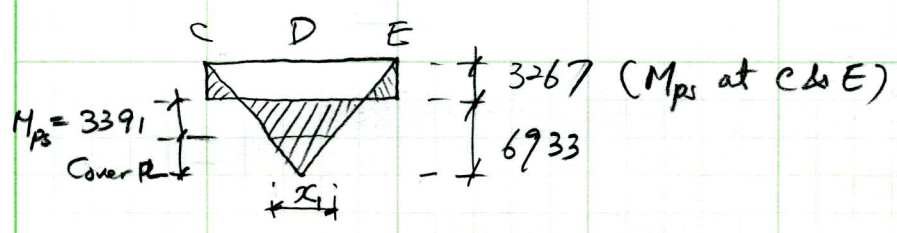 C D E
3267 (Mps at C & E)
Mps = 3391
6933
Cover PL
x1